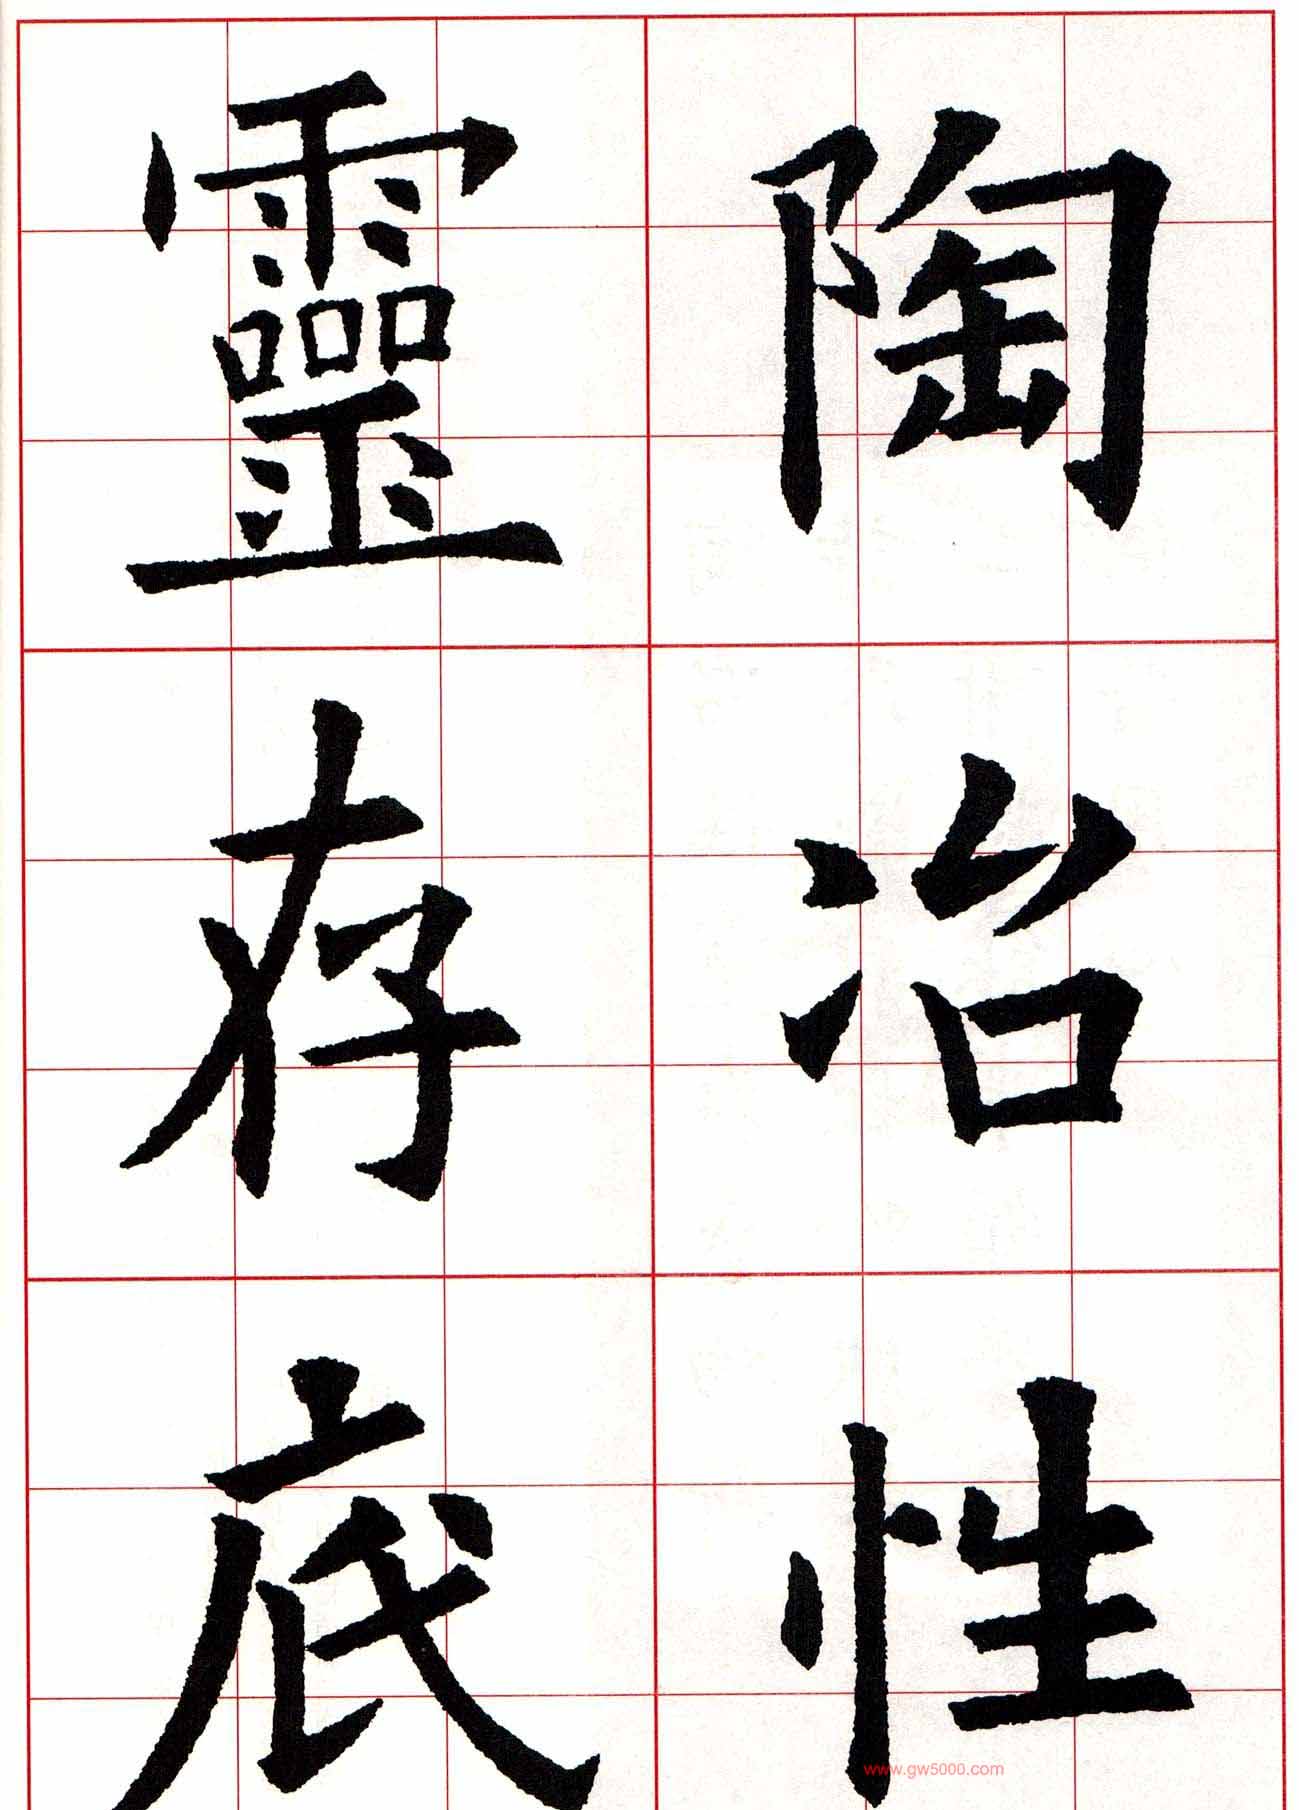 陶冶性
靈存底
www.gw5000.com